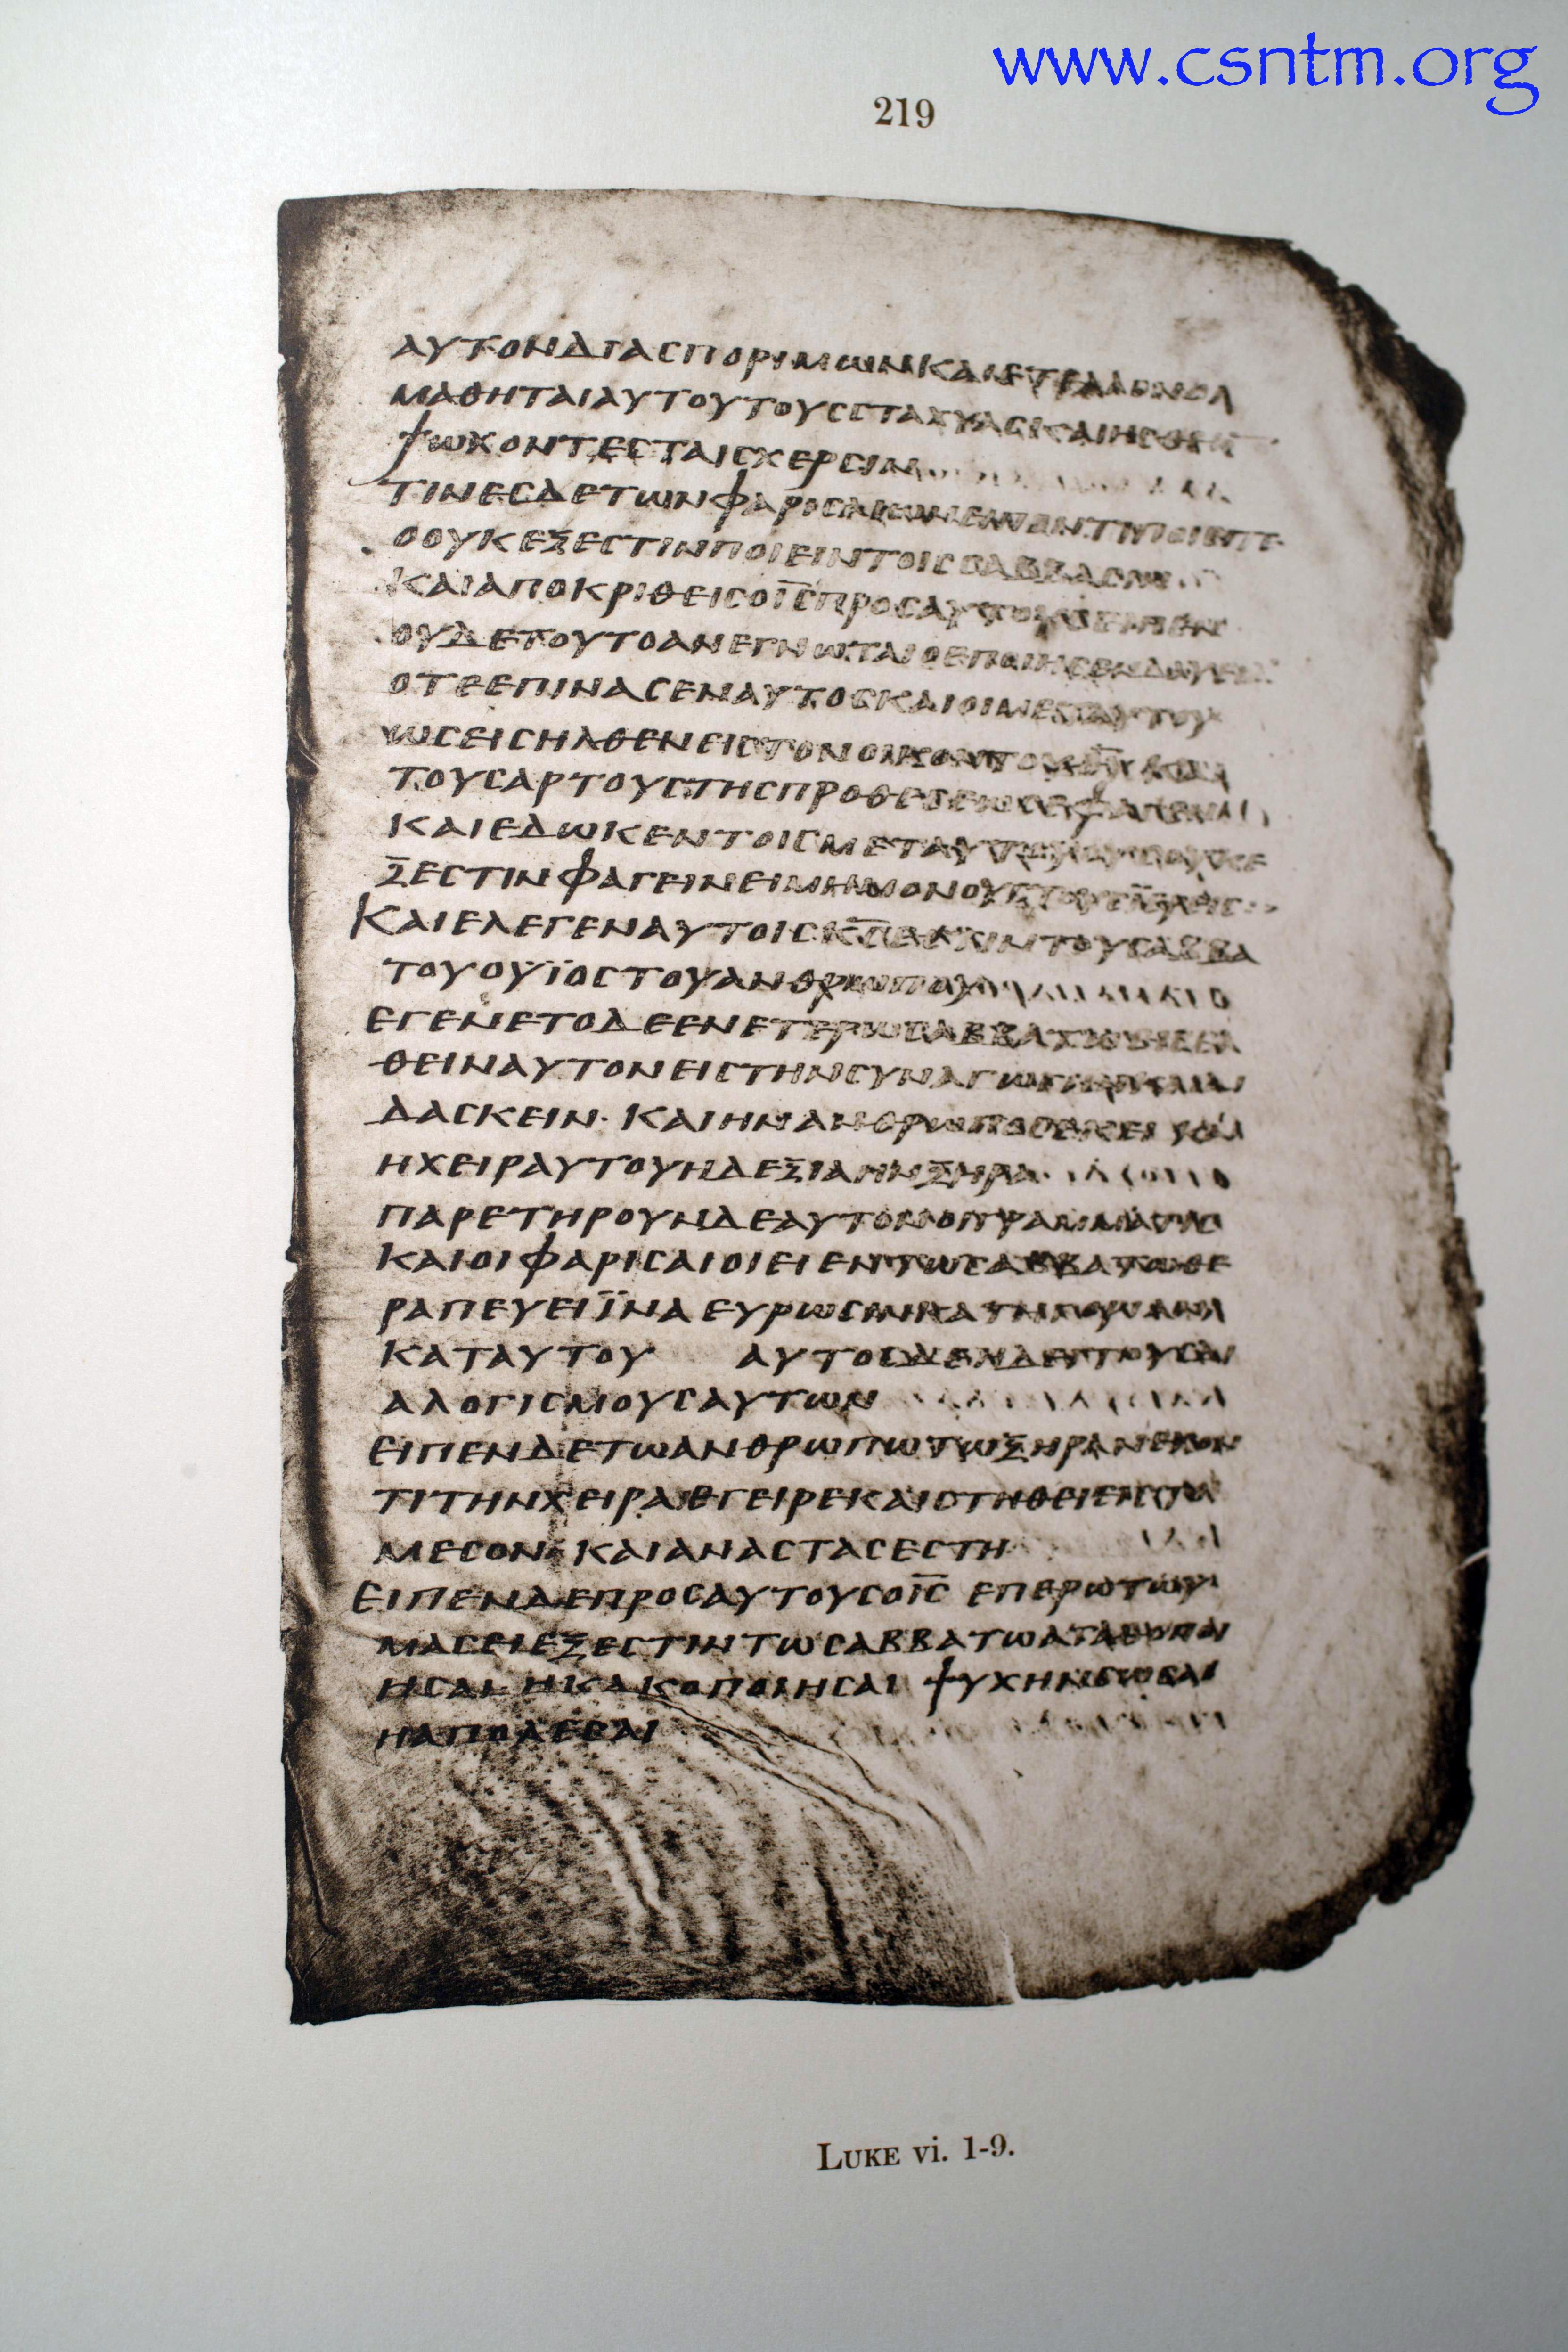 www.csntm.org
219
ΑΥΤΟΝΔΙΑСΠΟΡΙΜΩΝΚΑΙΕΤΙΛΛΟΝΟΙ
ΜΑΘΗΤΑΙΑΥΤΟΥΤΟΥССΤΑΧΥΑСΚΑΙΗСΘΙΟΝ
ΨΩΧΟΝΤΕСΤΑΙСΧΕΡСΙΝ
ΤΙΝΕСΔΕΤΩΝΦΑΡΙСΑΙΩΝΕΙΠΟΝΤΙΠΟΙΕΙΤΕ
ΟΟΥΚΕΞΕСΤΙΝΠΟΙΕΙΝΤΟΙССΑΒΒΑСΙΝ
ΚΑΙΑΠΟΚΡΙΘΕΙСΟΙ̅С̅ΠΡΟСΑΥΤΟΥСΕΙΠΕΝ
ΟΥΔΕΤΟΥΤΟΑΝΕΓΝΩΤΑΙΟΕΠΟΙΗСΕΝ
ΟΤΕΕΠΙΝΑСΕΝΑΥΤΟСΚΑΙΟΙΜΕΤΑΥΤΟΥ
ΩСΕΙСΗΛΘΕΝΕΙСΤΟΝΟΙΚΟΝΤΟΥΘ̅Υ̅ΚΑΙ
ΤΟΥСΑΡΤΟΥСΤΗСΠΡΟΘΕСΕΩСΕΦΑΓΕΝ
ΚΑΙΕΔΩΚΕΝΤΟΙСΜΕΤΑΥΤΟΥΟΥСΟΥΚΕ
ΞΕСΤΙΝΦΑΓΕΙΝΕΙΜΗΜΟΝΟΥСΤΟΥСΪΕΡΕΙС
ΚΑΙΕΛΕΓΕΝΑΥΤΟΙСΚ̅С̅ΕСΤΙΝΤΟΥСΑΒΒΑ
ΤΟΥΟΥΪΟСΤΟΥΑΝΘΡΩΠΟΥ
ΕΓΕΝΕΤΟΔΕΕΝΕΤΕΡΩСΑΒΒΑΤΩΕΙСΕΛ
ΘΕΙΝΑΥΤΟΝΕΙСΤΗΝСΥΝΑΓΩΓΗΝΚΑΙΔΙ
ΔΑСΚΕΙΝ· ΚΑΙΗΝΑΝΘΡΩΠΟСΕΚΕΙΚΑΙ
ΗΧΕΙΡΑΥΤΟΥΗΔΕΞΙΑΗΝΞΗΡΑ·
ΠΑΡΕΤΗΡΟΥΝΔΕΑΥΤΟΝΟΙΓΡΑΜΜΑΤΕΙС
ΚΑΙΟΙΦΑΡΙСΑΙΟΙΕΙΕΝΤΩСΑΒΒΑΤΩΘΕ
ΡΑΠΕΥΕΙΪΝΑΕΥΡΩСΙΝΚΑΤΗΓΟΡΙΑΝ
ΚΑΤΑΥΤΟΥ ΑΥΤΟСΔΕΗΔΕΙΤΟΥСΔΙ
ΑΛΟΓΙСΜΟΥСΑΥΤΩΝ
ΕΙΠΕΝΔΕΤΩΑΝΘΡΩΠΩΤΩΞΗΡΑΝΕΧΟΝ
ΤΙΤΗΝΧΕΙΡΑΕΓΕΙΡΕΚΑΙСΤΗΘΙΕΙСΤΟ
ΜΕСΟΝ· ΚΑΙΑΝΑСΤΑСΕСΤΗ
ΕΙΠΕΝΔΕΠΡΟСΑΥΤΟΥСΟΙ̅С̅ ΕΠΕΡΩΤΩΥ
ΜΑСΕΙΕΞΕСΤΙΝΤΩСΑΒΒΑΤΩΑΓΑΘΟΠΟΙ
ΗСΑΙ ΗΚΑΚΟΠΟΙΗСΑΙ ΨΥΧΗΝСΩСΑΙ
ΗΑΠΟΛΕСΑΙ
LUKE vi. 1-9.